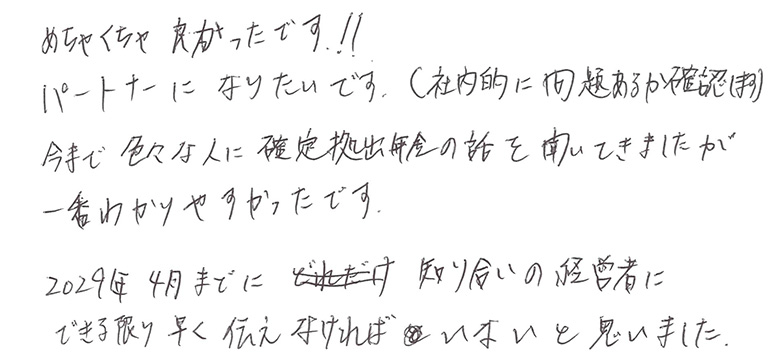 めちゃくちゃ良かったです!!
パートナーになりたいです。(社内的に問題あるか確認します)
今まで色々な人に確定拠出年金の話を聞いてきましたが
一番わかりやすかったです。
2029年4月までに どれだけ 知り合いの経営者に
できる限り早く伝えなければいないと思いました。